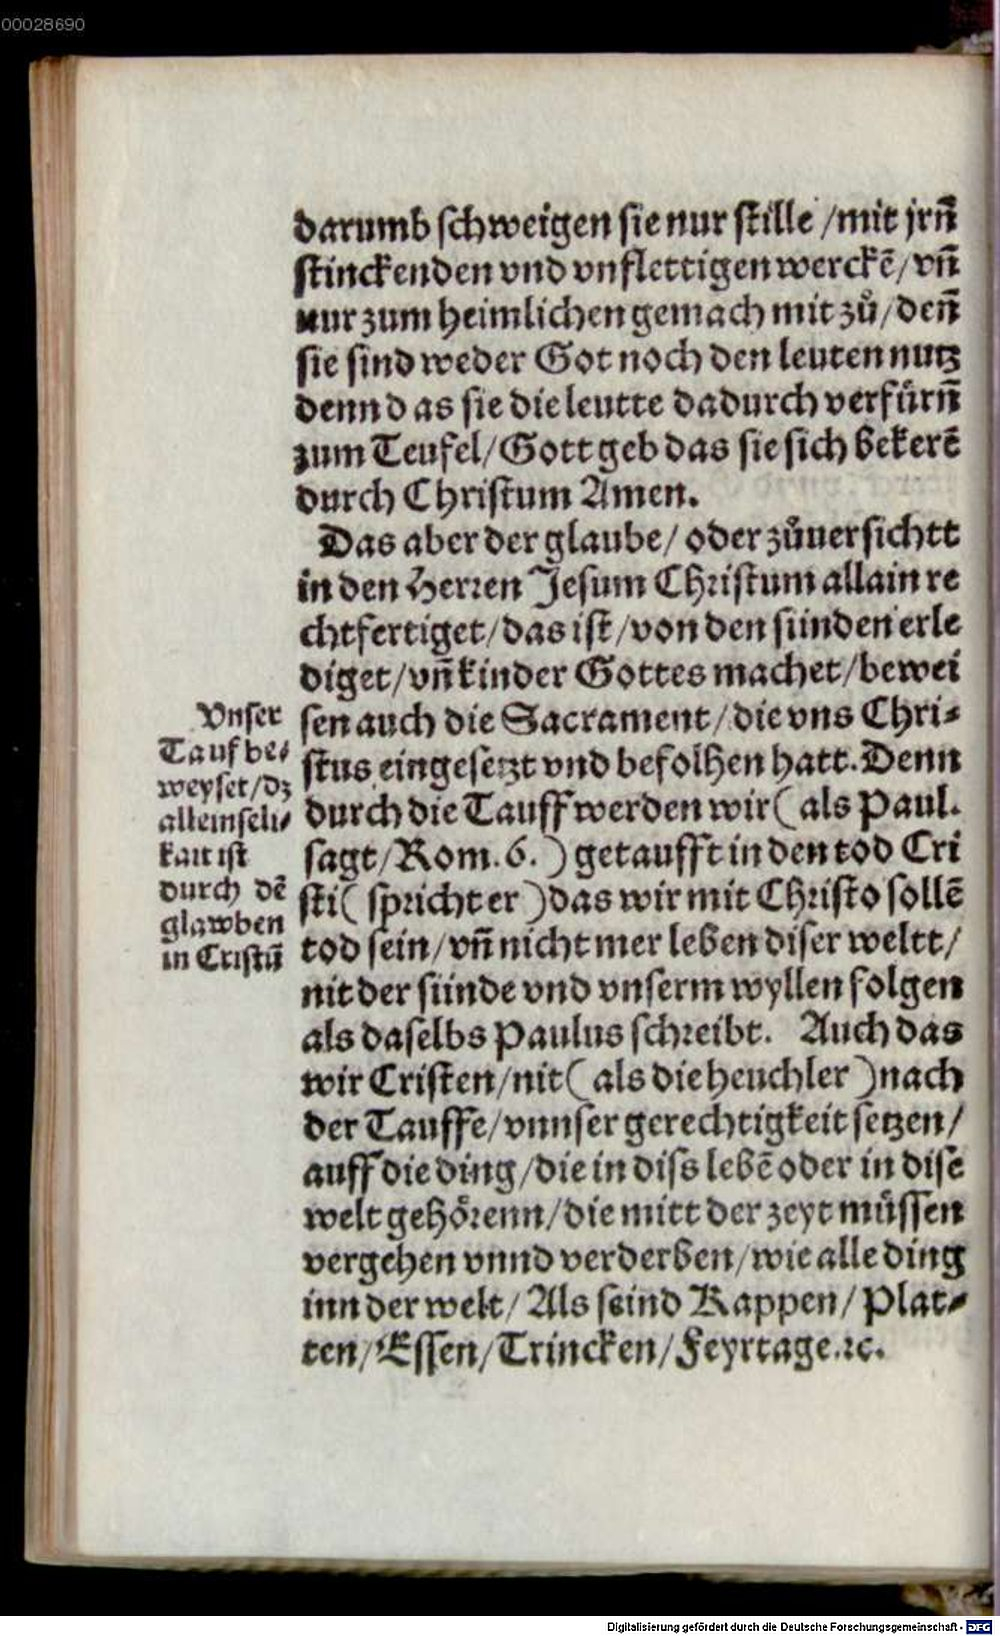 00028690
darumb schweigen sie nur stille / mit jrn̄
stinckenden vnd vnflettigen werckē / vn̄
nur zum heimlichen gemach mit zuͦ / den̄
sie sind weder Got noch den leuten nutz
denn d as sie die leutte dadurch verfürn̄
zum Teufel / Gott geb das sie sich bekerē
durch Christum Amen.
Das aber der glaube / oder zuͦuersichtt
in den Herren Jesum Christum allain re
chtfertiget / das ist / von den sünden erle
diget / vn̄ kinder Gottes machet / bewei
sen auch die Sacrament / die vns Chri⸗
stus eingesetzt vnd befolhen hatt. Denn
durch die Tauff werden wir ( als Paul.
sagt / Rom. 6. ) getaufft in den tod Cri
sti ( spricht er ) das wir mit Christo sollē
tod sein / vn̄ nicht mer leben diser weltt /
nit der sünde vnd vnserm wyllen folgen
als daselbs Paulus schreibt. Auch das
wir Cristen / nit ( als die heuchler ) nach
der Tauffe / vnnser gerechtigkeit setzen /
auff die ding / die in diss lebē oder in dise
welt gehörenn / die mitt der zeyt müssen
vergehen vnnd verderben / wie alle ding
inn der welt / Als seind Kappen / Plat⸗
ten / Essen / Trincken / Feyrtage. ꝛc.
Vnser
Tauf be⸗
weyset / dz
allein seli⸗
kait ist
durch dē
glawben
in Cristū
Digitalisierung gefördert durch die Deutsche Forschungsgemeinschaft - DFG